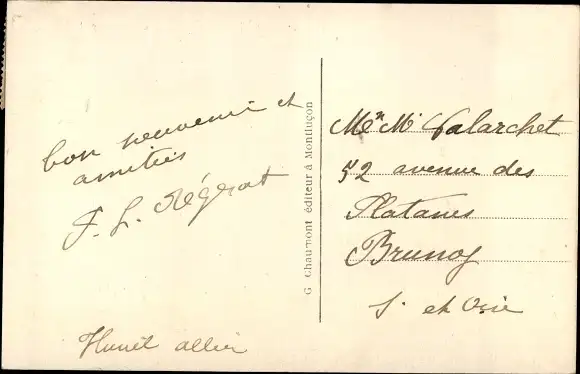 bon souvenir et
amitiés
F. L. Régerat
Huriel allier
G Chaumont éditeur à Montluçon
Mr Mme Valarchet
52 avenue des
Platanes
Brunoy
S. et Oise